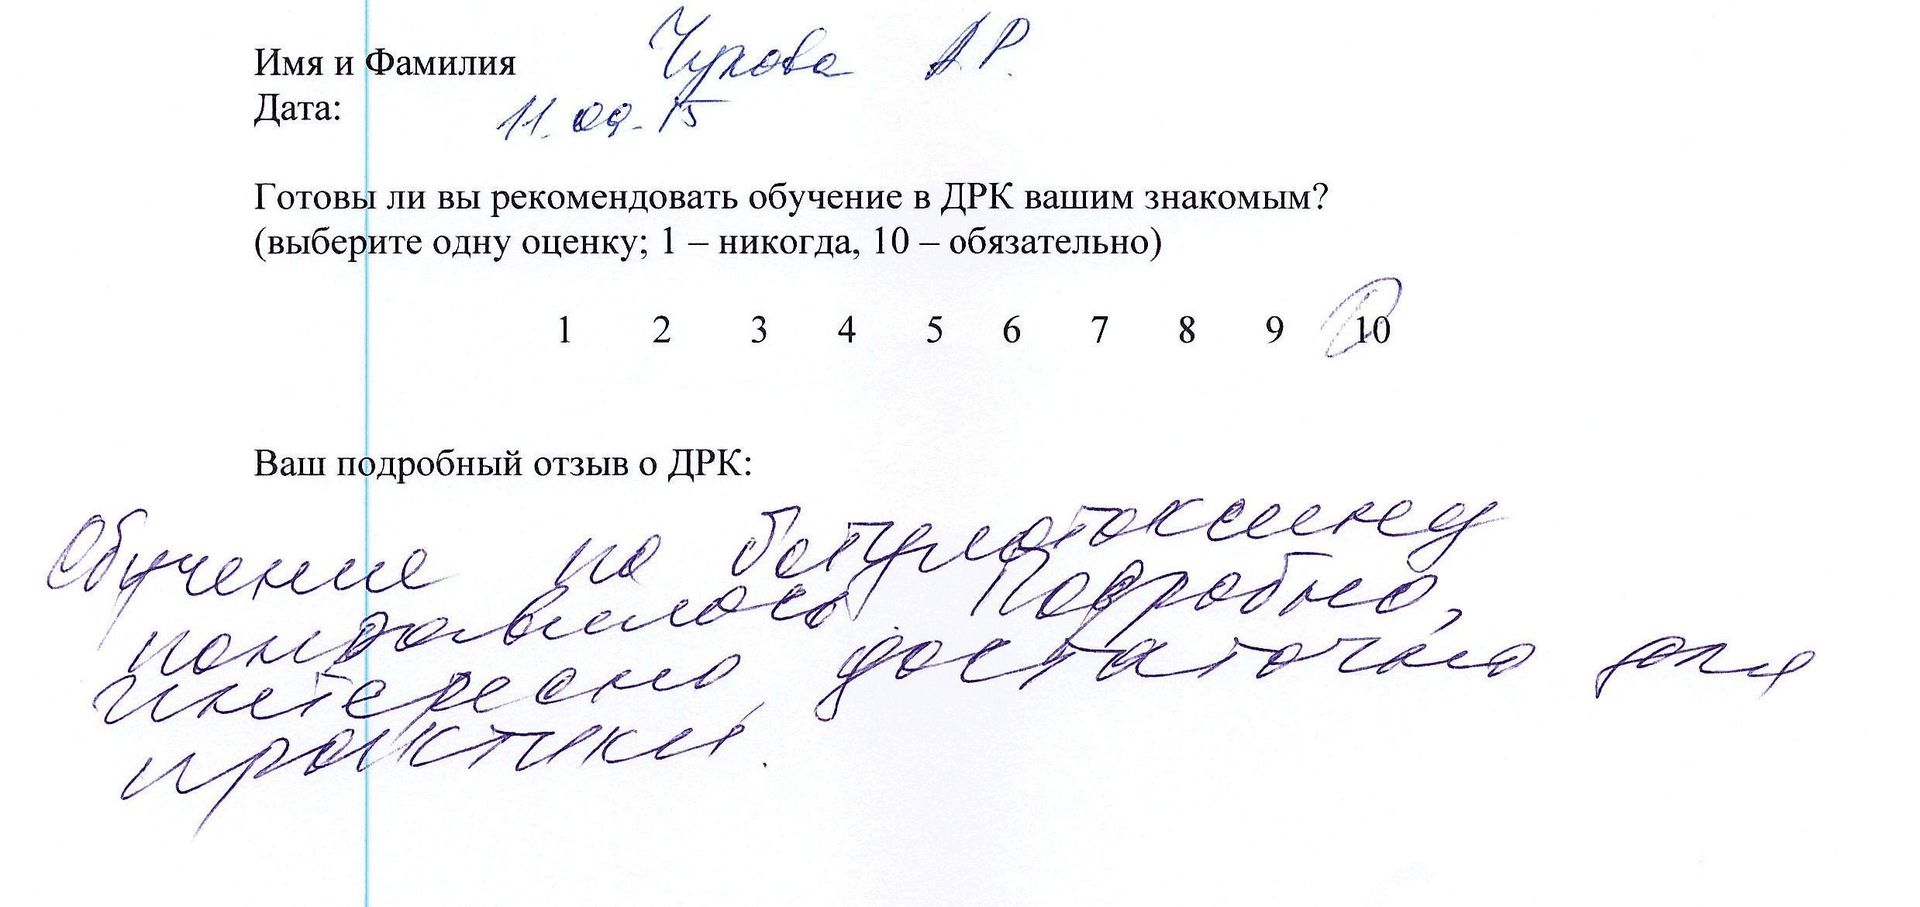 Имя и Фамилия Чупова А.Р.
Дата: 11.09.15
Готовы ли вы рекомендовать обучение в ДРК вашим знакомым?
(выберите одну оценку; 1 – никогда, 10 – обязательно)
1 2 3 4 5 6 7 8 9 10
Ваш подробный отзыв о ДРК:
Обучение по ботулотоксину
понравилось. Подробно,
интересно, достаточно для
практики.